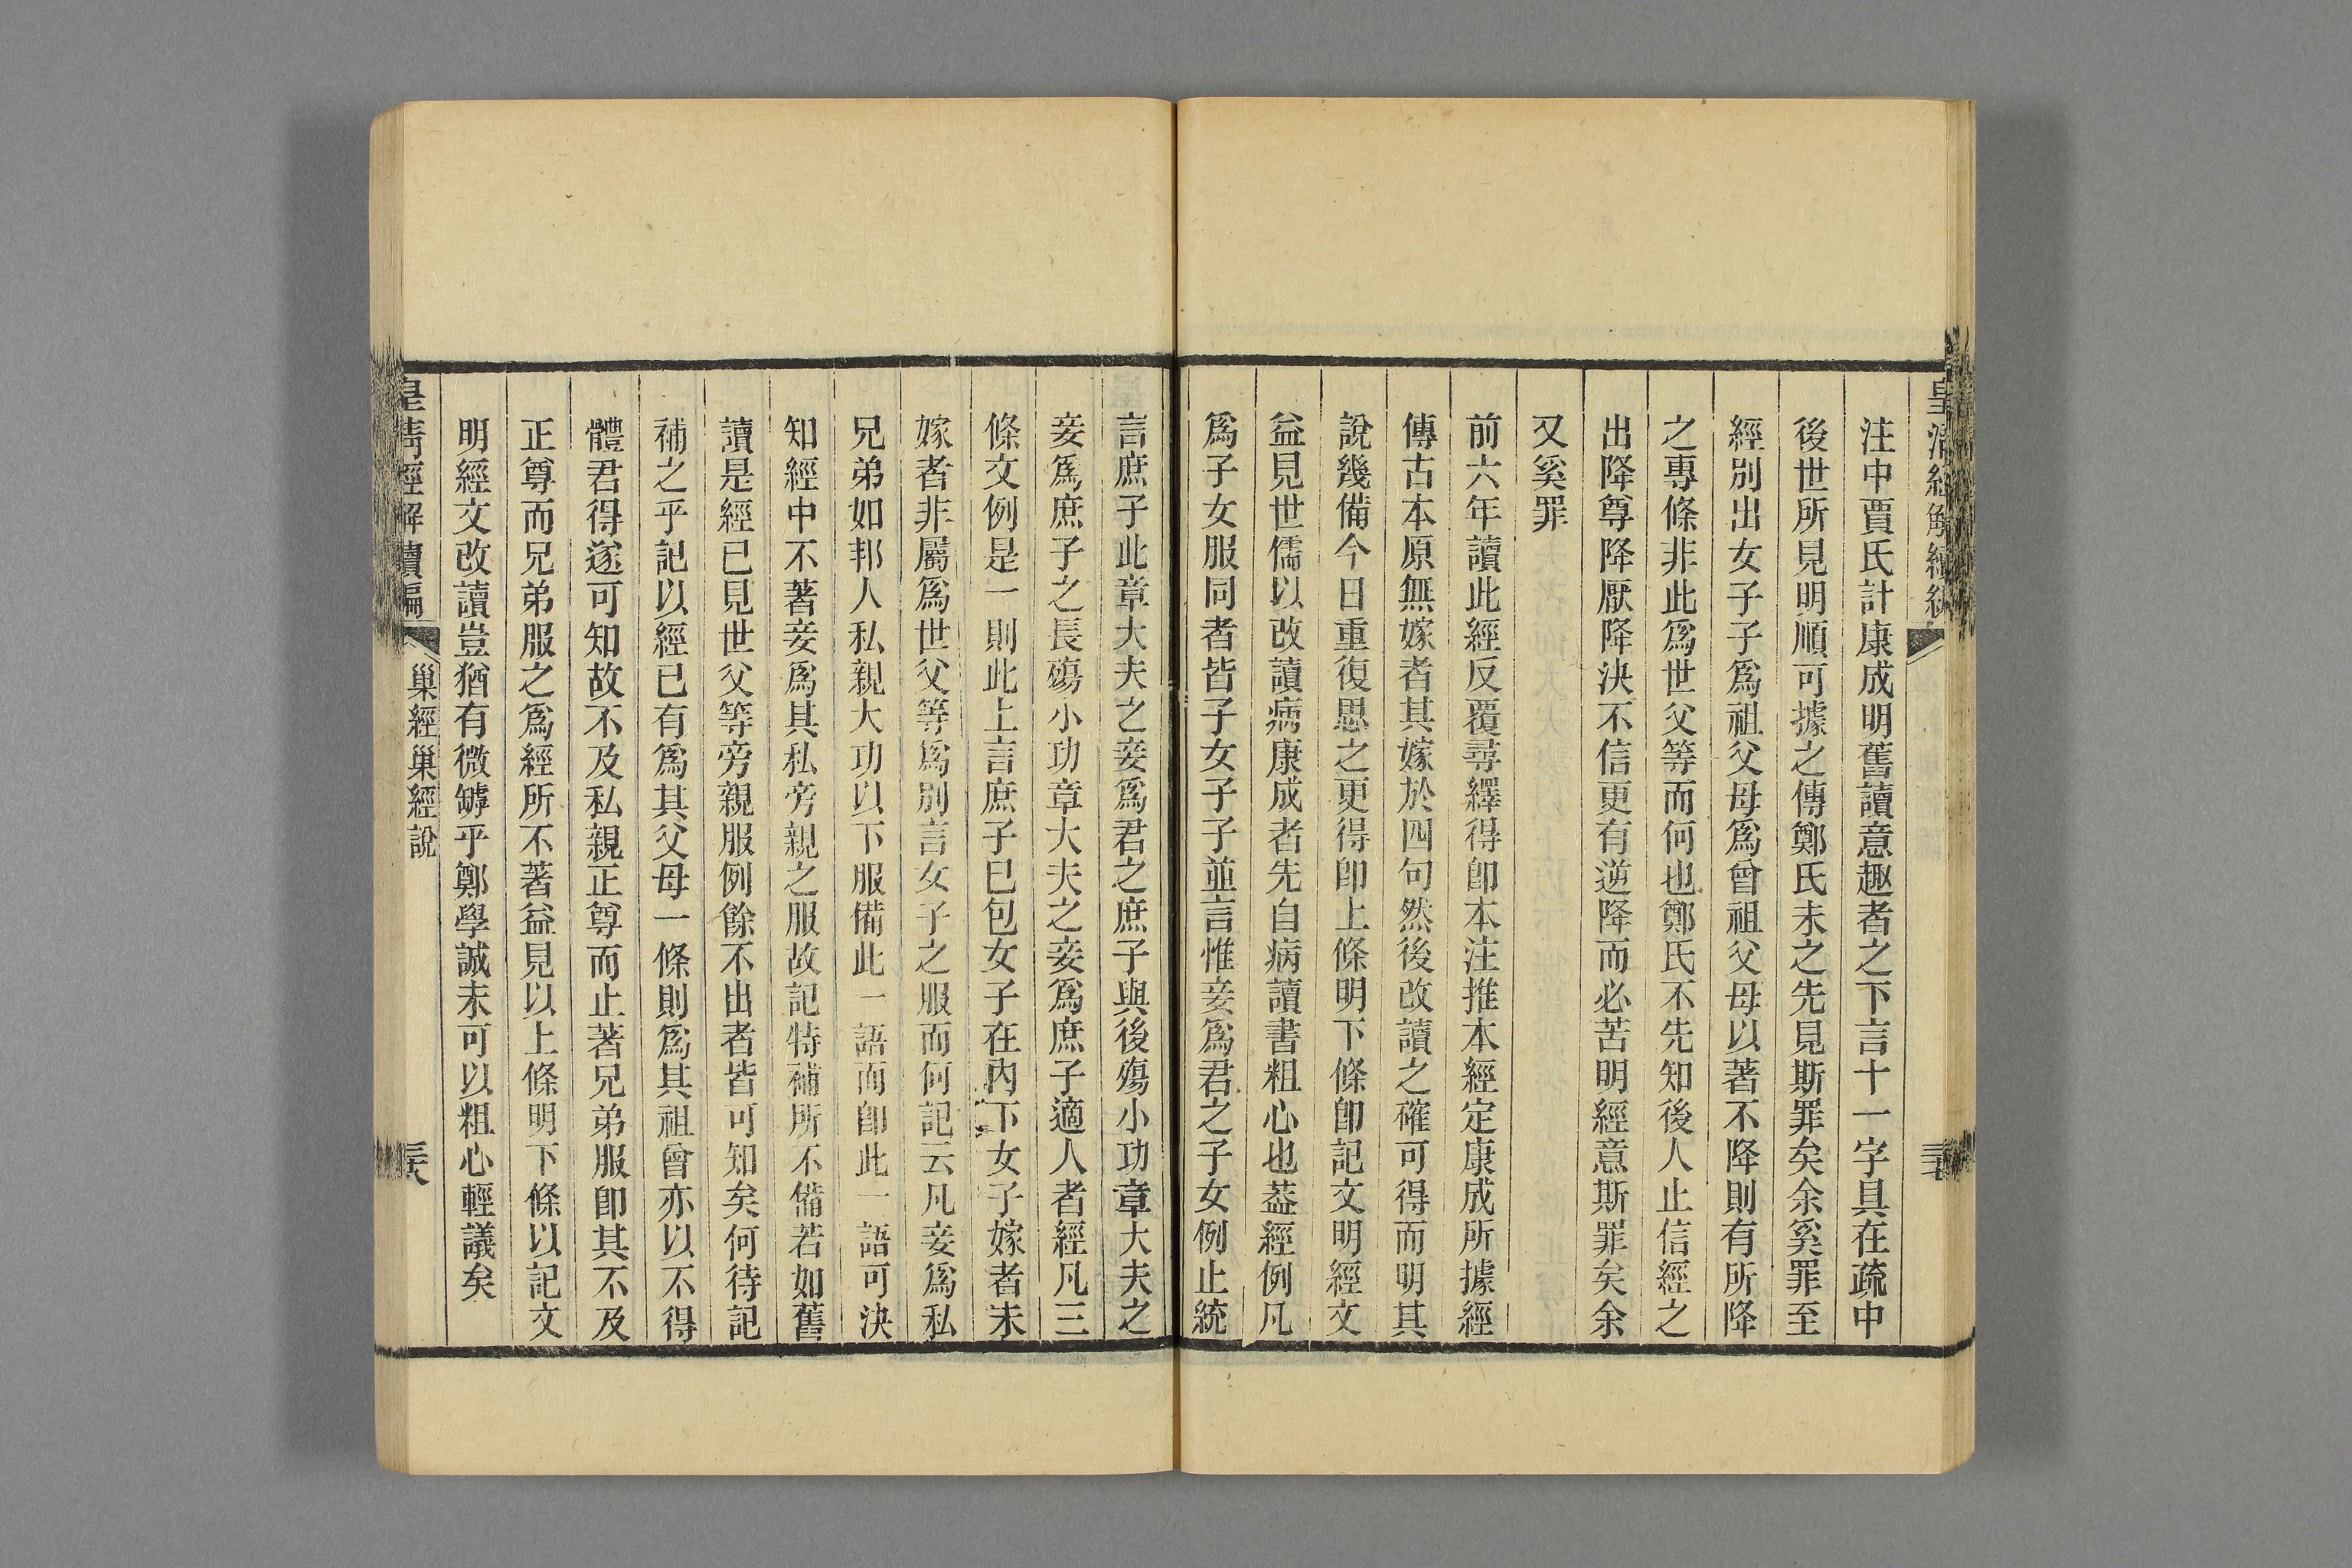 皇清經解續編
注中賈氏計康成明舊讀意趣者之下言十一字具在疏中
後世所見明順可據之傳鄭氏未之先見斯罪矣余奚罪至
經別出女子子爲祖父母爲曾祖父母以著不降則有所降
之專條非此爲世父等而何也鄭氏不先知後人止信經之
出降尊降厭降決不信更有逆降而必苦明經意斯罪矣余
又奚罪
前六年讀此經反覆尋繹得卽本注推本經定康成所據經
傳古本原無嫁者其嫁於四句然後改讀之確可得而明其
說幾備今日重復思之更得卽上條明下條卽記文明經文
益見世儒以改讀病康成者先自病讀書粗心也葢經例凡
爲子女服同者皆子女子子並言惟妾爲君之子女例止統
言庶子此章大夫之妾爲君之庶子與後殤小功章大夫之
妾爲庶子之長殤小功章大夫之妾爲庶子適人者經凡三
條文例是一則此上言庶子已包女子在內下女子嫁者未
嫁者非屬爲世父等爲別言女子之服而何記云凡妾爲私
兄弟如邦人私親大功以下服備此一語而卽此一語可決
知經中不著妾爲其私旁親之服故記特補所不備若如舊
讀是經已見世父等旁親服例餘不出者皆可知矣何待記
補之乎記以經已有爲其父母一條則爲其祖曾亦以不得
體君得遂可知故不及私親正尊而止著兄弟服卽其不及
正尊而兄弟服之爲經所不著益見以上條明下條以記文
明經文改讀豈猶有微罅乎鄭學誠未可以粗心輕議矣
皇清經解續編
巢經巢經說